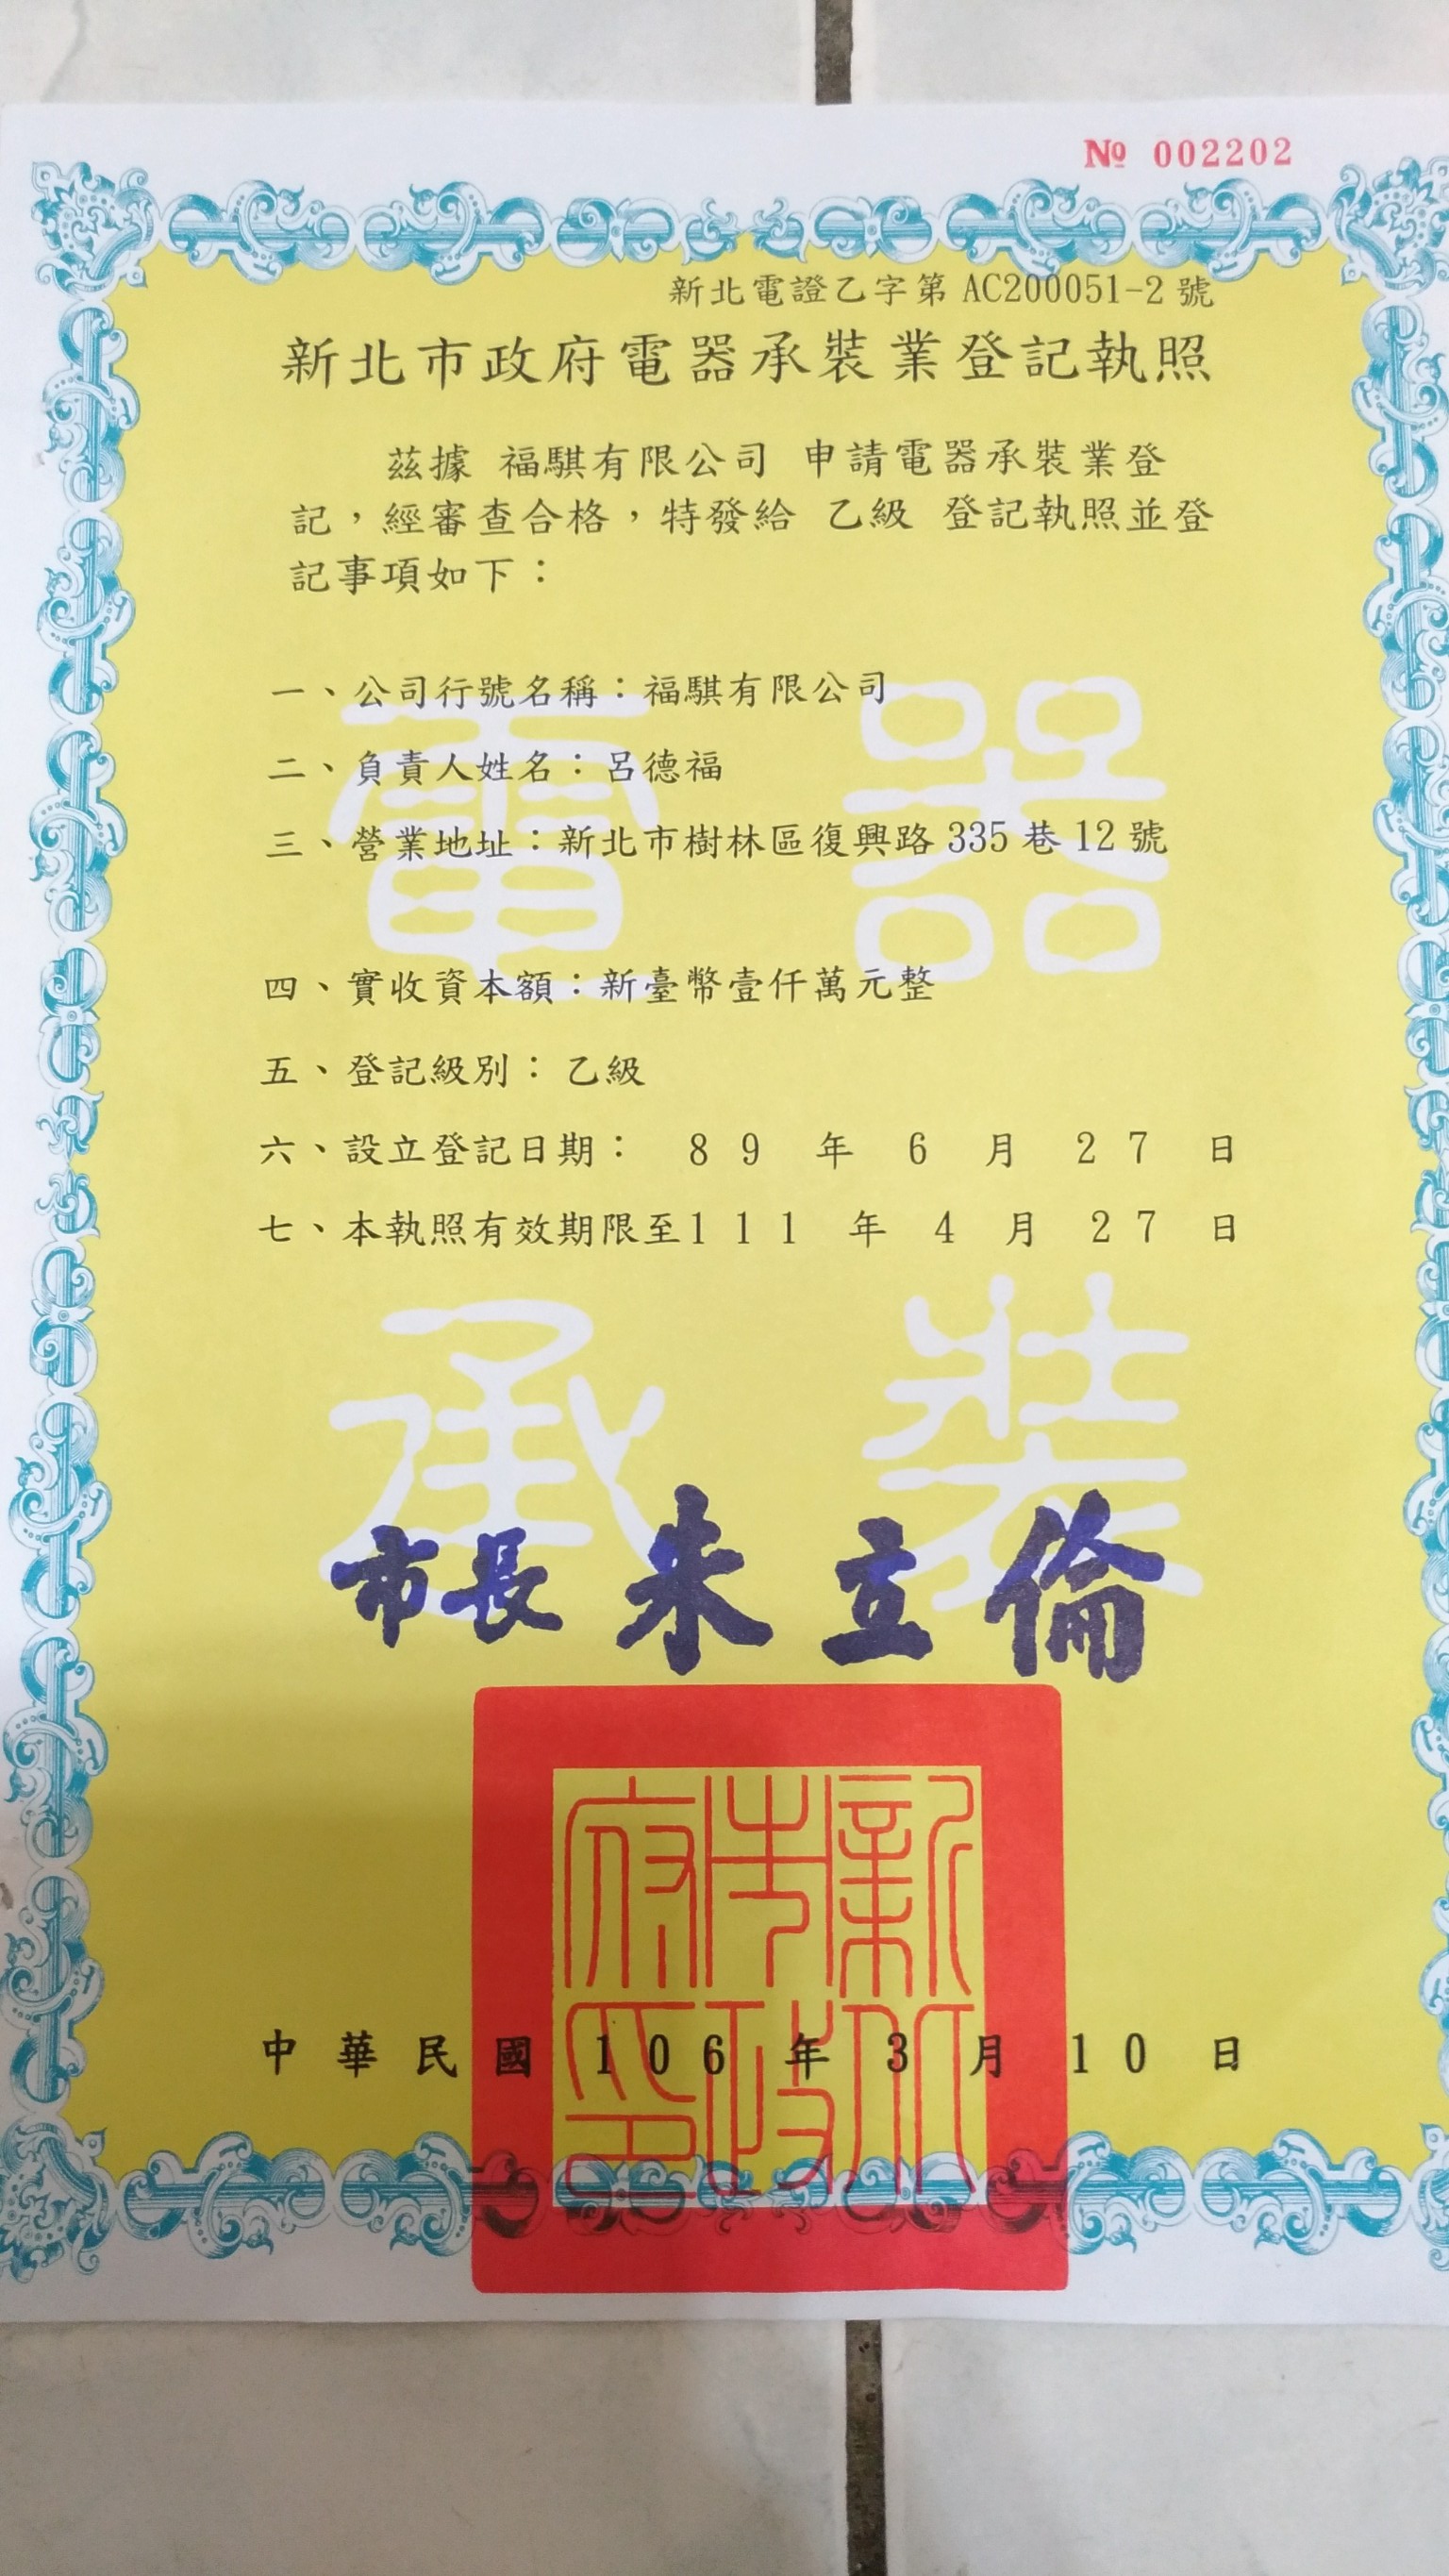 № 002202
新北電證乙字第 AC200051-2 號
新北市政府電器承裝業登記執照
茲據 福騏有限公司 申請電器承裝業登
記，經審查合格，特發給 乙級 登記執照並登
記事項如下：
一、公司行號名稱：福騏有限公司
二、負責人姓名：呂德福
三、營業地址：新北市樹林區復興路 335 巷 12 號
四、實收資本額：新臺幣壹仟萬元整
五、登記級別： 乙級
六、設立登記日期： 89 年 6 月 27 日
七、本執照有效期限至111 年 4 月 27 日
電器
承裝
市長 朱立倫
新北市政府印
中華民國 106 年 3 月 10 日